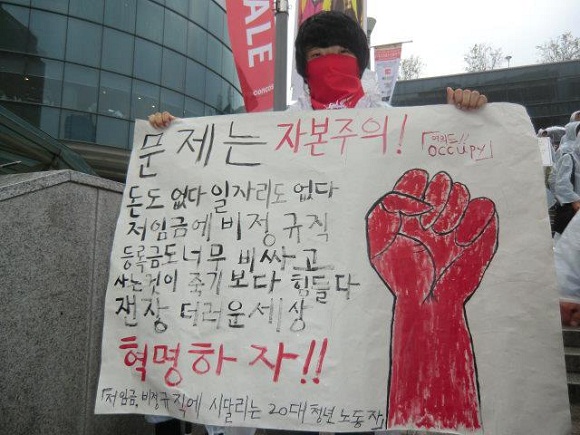 SALE
문제는 자본주의!
「여의도!!
OCCUPY」
돈도 없다 일자리도 없다
저임금에 비정규직
등록금도 너무 비싸고
사는것이 죽기보다 힘들다
젠장 더러운 세상
혁명하자!!
「저임금, 비정규직에 시달리는 20대 청년 노동자」